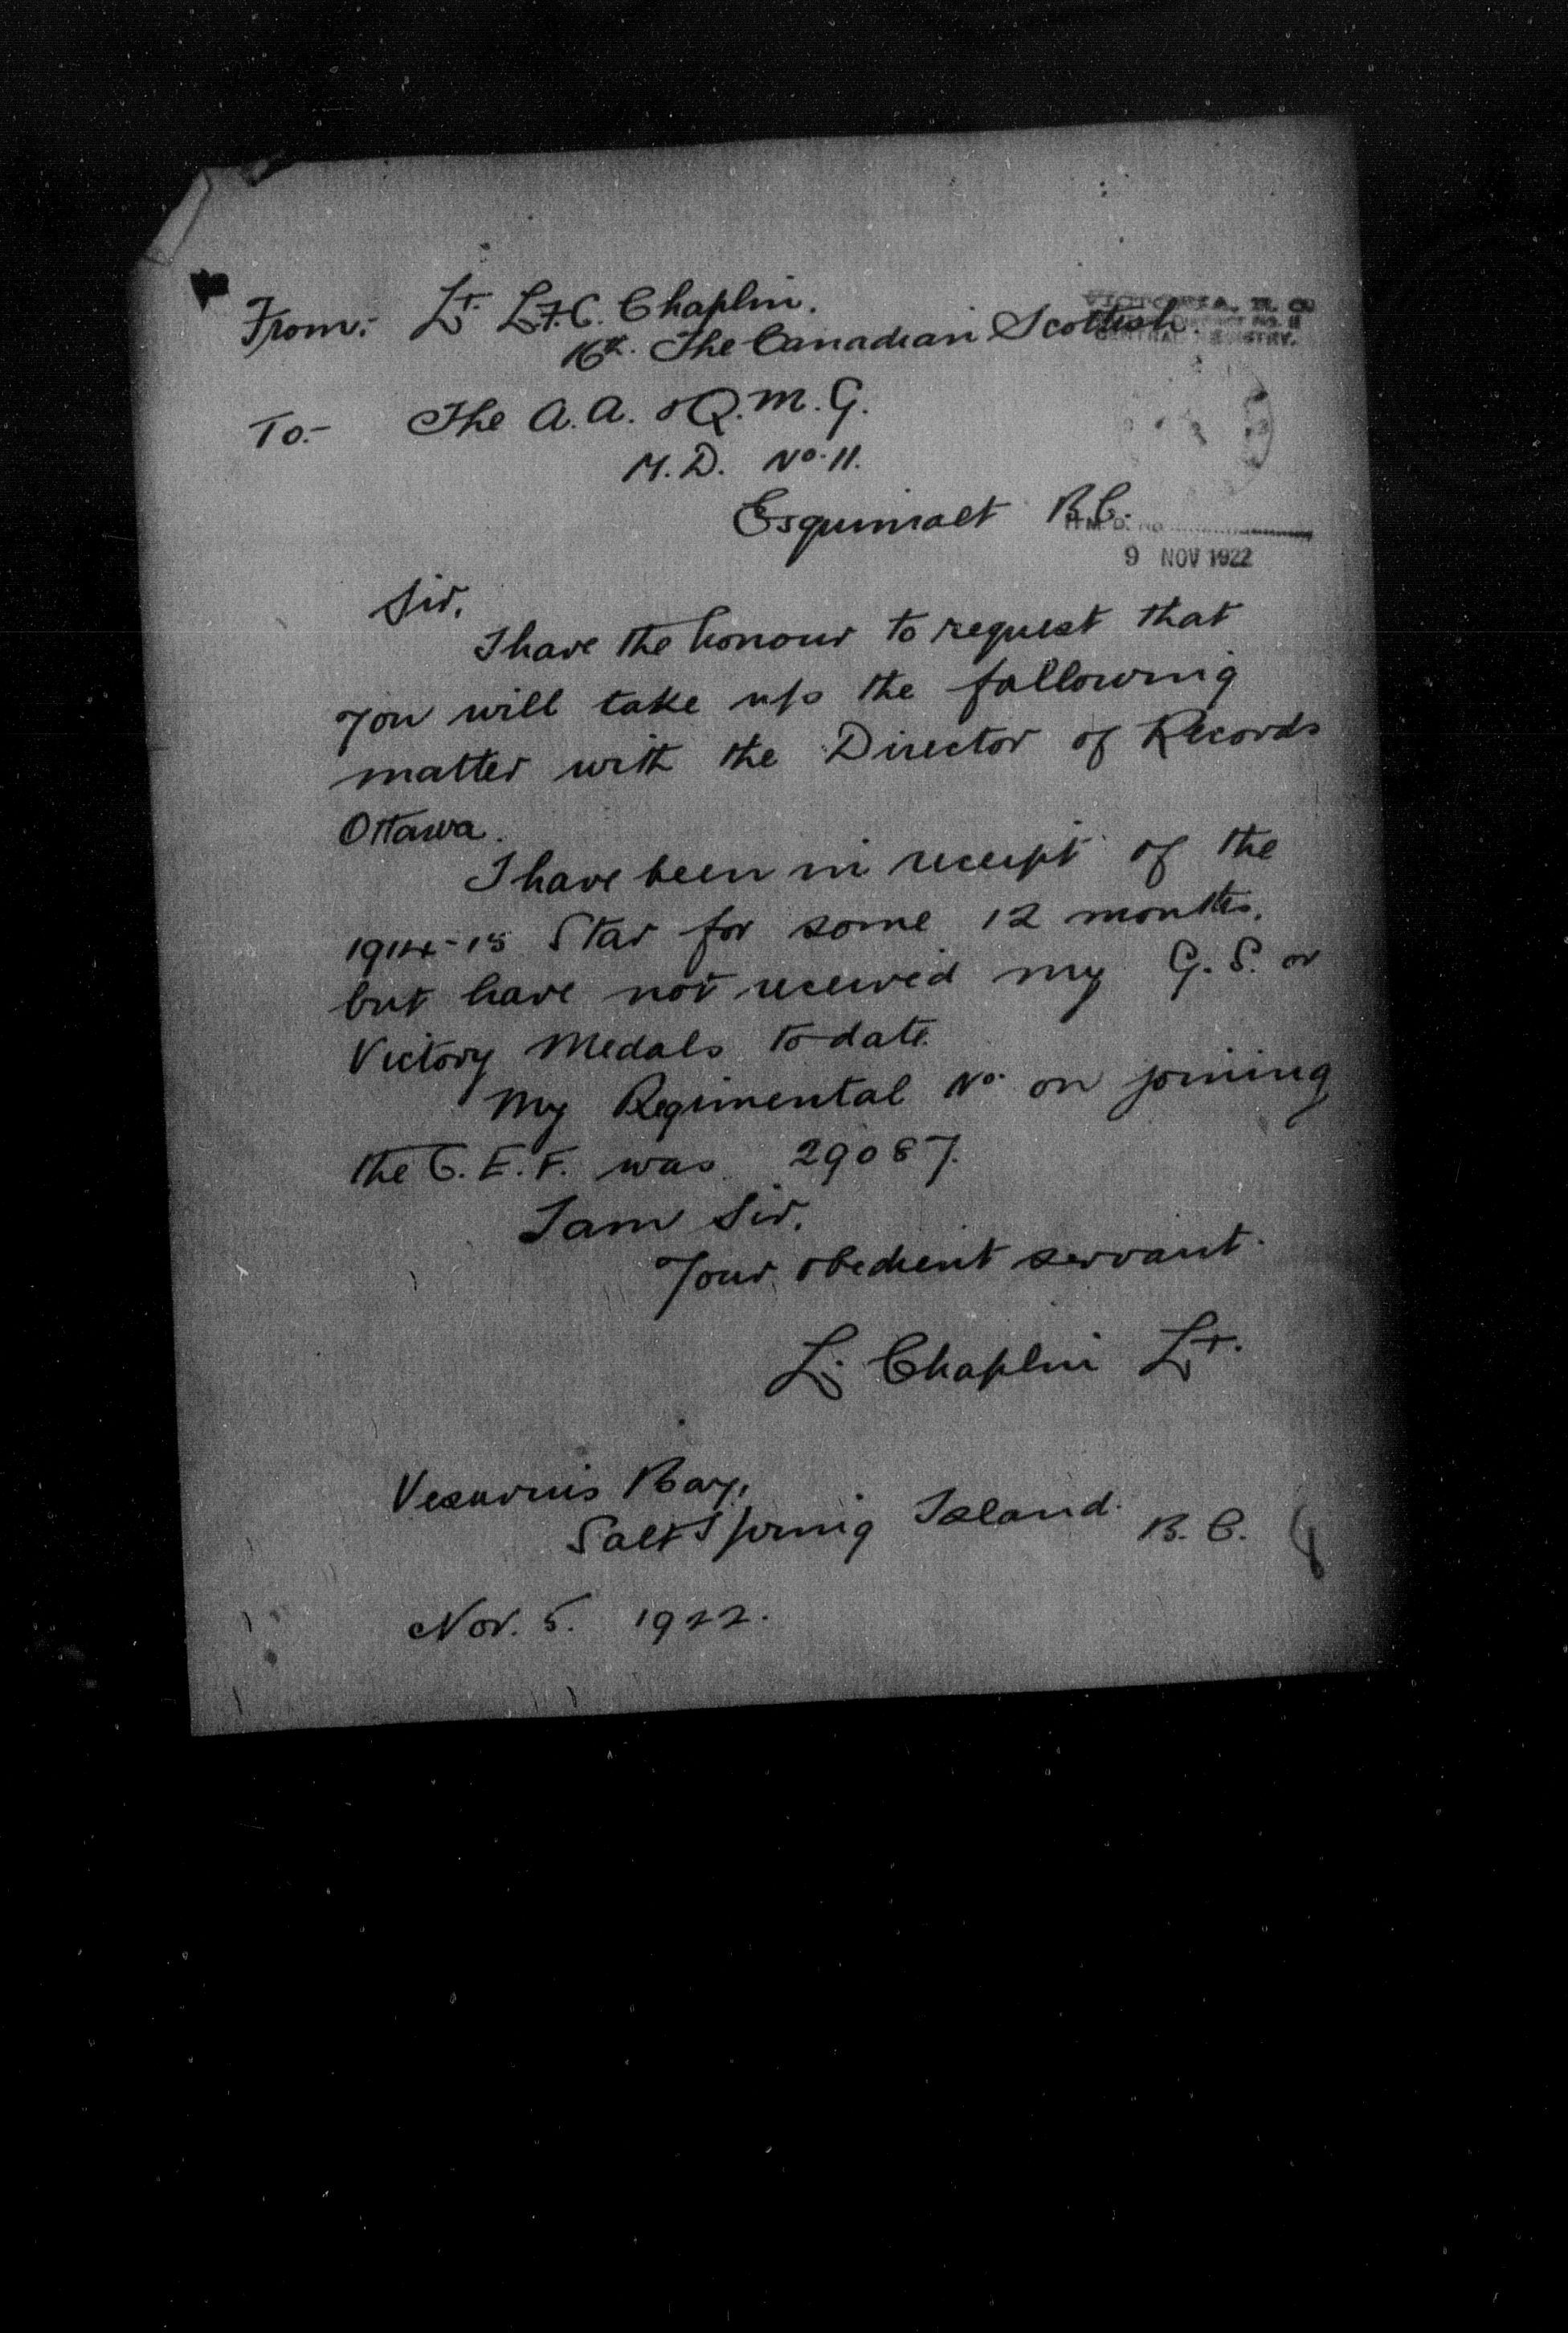 From:- Lt. L.F.C. Chaplin.
16th. The Canadian Scottish.
VICTORIA, B. C.
No. 11
CENTRAL REGISTRY.
To:- The A.A. & Q.M.G.
M.D. No. 11.
Esquimalt B.C.
H.M.D. No
9 NOV 1922
Sir,
I have the honour to request that
you will take up the following
matter with the Director of Records
Ottawa.
I have been in receipt of the
1914-15 Star for some 12 months,
but have not received my G.S. or
Victory Medals to date.
My Regimental No. on joining
the C.E.F. was 29087.
I am Sir,
Your obedient servant.
L. Chaplin Lt.
Vesuvius Bay,
Salt Spring Island. B.C.
Nov. 5. 1922.